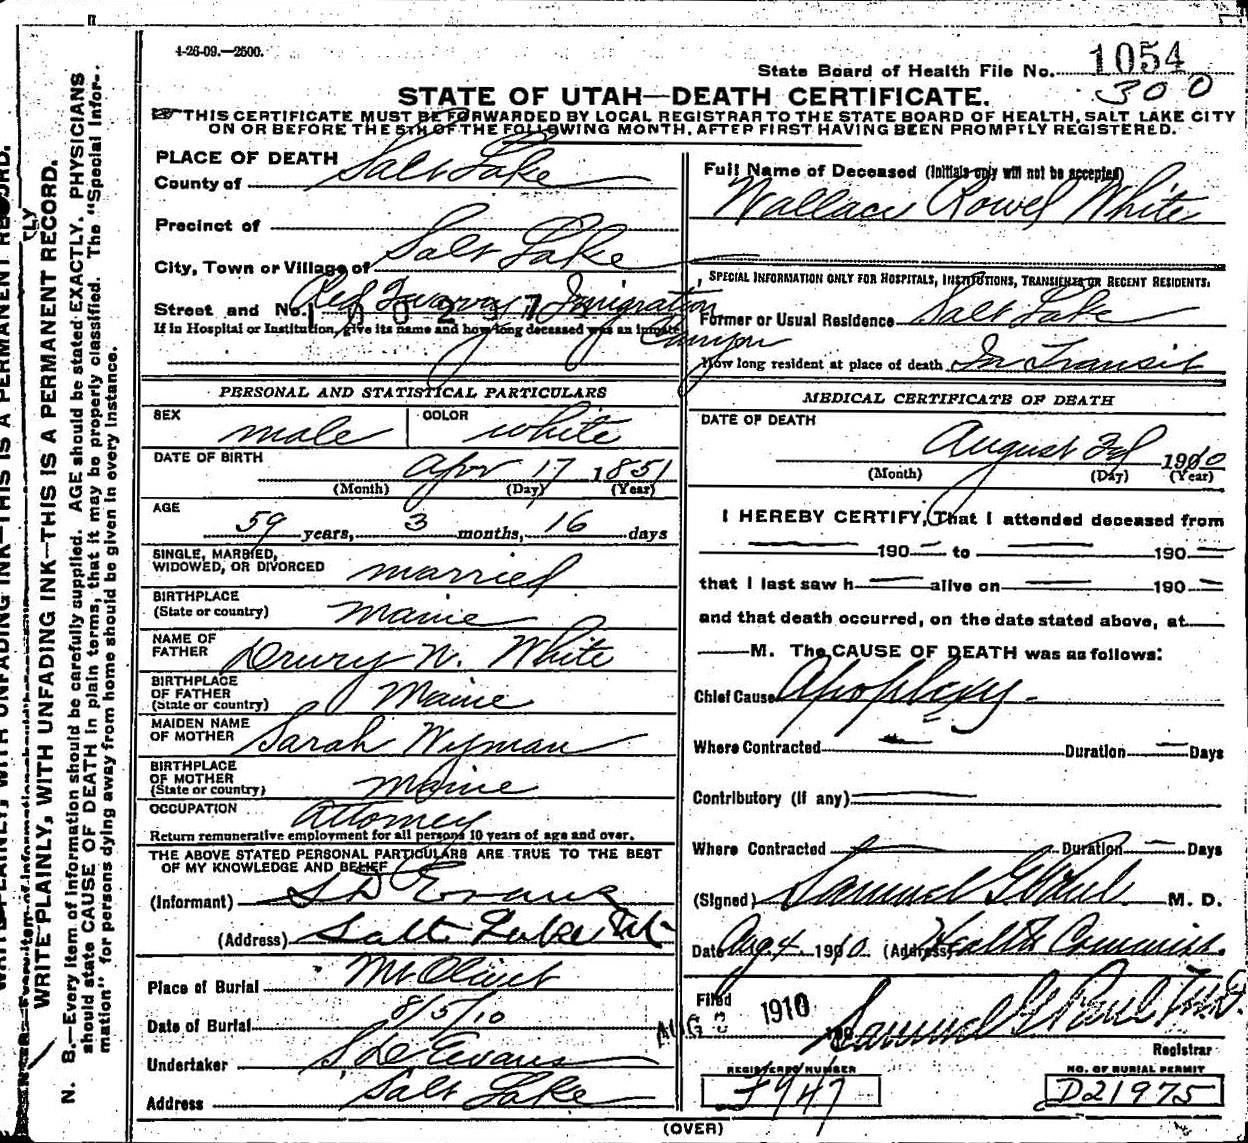 4-26-09.—2500.
State Board of Health File No. 1054
300
STATE OF UTAH—DEATH CERTIFICATE.
THIS CERTIFICATE MUST BE FORWARDED BY LOCAL REGISTRAR TO THE STATE BOARD OF HEALTH, SALT LAKE CITY
ON OR BEFORE THE 5TH OF THE FOLLOWING MONTH, AFTER FIRST HAVING BEEN PROMPTLY REGISTERED.
PLACE OF DEATH
County of Salt Lake
Precinct of
City, Town or Village of Salt Lake
Street and No. Red Quarry Imigration Canyon
If in Hospital or Institution, give its name and how long deceased was an inmate
Full Name of Deceased (Initials only will not be accepted)
Wallace Rowel White
SPECIAL INFORMATION ONLY FOR HOSPITALS, INSTITUTIONS, TRANSIENTS OR RECENT RESIDENTS:
Former or Usual Residence Salt Lake
How long resident at place of death In Transit
PERSONAL AND STATISTICAL PARTICULARS
SEX male COLOR white
DATE OF BIRTH Apr 17 1851
(Month) (Day) (Year)
AGE
59 years, 3 months, 16 days
SINGLE, MARRIED,
WIDOWED, OR DIVORCED married
BIRTHPLACE
(State or country) Maine
NAME OF
FATHER Drury W. White
BIRTHPLACE
OF FATHER
(State or country) Maine
MAIDEN NAME
OF MOTHER Sarah Wyman
BIRTHPLACE
OF MOTHER
(State or country) Maine
OCCUPATION Attorney
Return remunerative employment for all persons 10 years of age and over.
THE ABOVE STATED PERSONAL PARTICULARS ARE TRUE TO THE BEST
OF MY KNOWLEDGE AND BELIEF
(Informant) S D Evans
(Address) Salt Lake Ut
Place of Burial Mt Olivet
Date of Burial 8/5/10
Undertaker S. D. Evans
Address Salt Lake
MEDICAL CERTIFICATE OF DEATH
DATE OF DEATH
August 3d 1910
(Month) (Day) (Year)
I HEREBY CERTIFY, That I attended deceased from
190 to 190
that I last saw h alive on 190
and that death occurred, on the date stated above, at
M. The CAUSE OF DEATH was as follows:
Chief Cause Apoplexy
Where Contracted Duration Days
Contributory (if any)
Where Contracted Duration Days
(Signed) Samuel G Paul M. D.
Date Aug 4 1910 (Address) Health Commiss.
Filed AUG 1910
Samuel G Paul M.D.
Registrar
REGISTERED NUMBER
NO. OF BURIAL PERMIT
D21975
(OVER)
WRITE PLAINLY, WITH UNFADING INK—THIS IS A PERMANENT RECORD.
N. B.—Every item of information should be carefully supplied. AGE should be stated EXACTLY. PHYSICIANS
should state CAUSE OF DEATH in plain terms, that it may be properly classified. The "Special Infor-
mation" for persons dying away from home should be given in every instance.